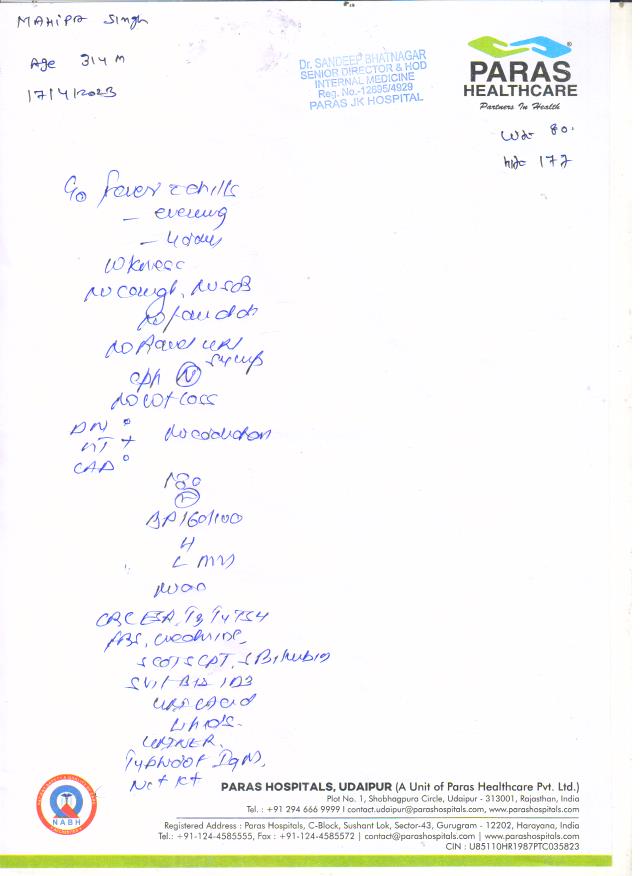 MAHIPA Singh
Age 31 y M
17/4/2023
Dr. SANDEEP BHATNAGAR
SENIOR DIRECTOR & HOD
INTERNAL MEDICINE
Reg. No.-12695/4929
PARAS JK HOSPITAL
PARAS
HEALTHCARE
Partners In Health
wt- 80.
ht- 177
fever chills
- evening
- 4 days
No cough, No SOB
No
No
Symp
N
No wt loss
DM °
HT +
CAD °
BP 160/100
CBC ESR, T3 T4 TSH
FBS, creatinine,
SGOT SGPT, S Bilirubin
S Vit B12, D3
Uric acid
Lipids.
URINE R.
Typhidot IgM,
Na+ K+
NABH
PARAS HOSPITALS, UDAIPUR (A Unit of Paras Healthcare Pvt. Ltd.)
Plot No. 1, Shobhagpura Circle, Udaipur - 313001, Rajasthan, India
Tel. : +91 294 666 9999 I contact.udaipur@parashospitals.com, www.parashospitals.com
Registered Address : Paras Hospitals, C-Block, Sushant Lok, Sector-43, Gurugram - 12202, Harayana, India
Tel.: +91-124-4585555, Fax : +91-124-4585572 | contact@parashospitals.com | www.parashospitals.com
CIN : U85110HR1987PTC035823